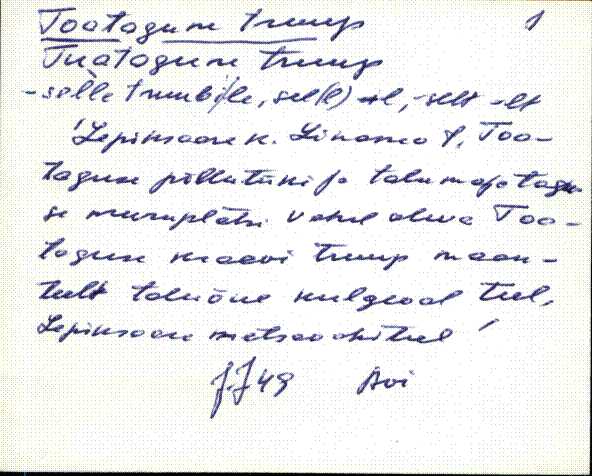 Tootagune trump 1
Tuatagune trump
- selle trumbi/le, sel(l) -l, -selt -lt
'Lepiksaare k. Linamäe t. Too-
taguse põllutüki ja talumaja tagu-
se muruplatsi vahel oleva Too-
taguse kraavi trump maan-
teelt taluõue kulgeval teel,
Lepiksaare metsavahiteel'
J.J 49 Avi